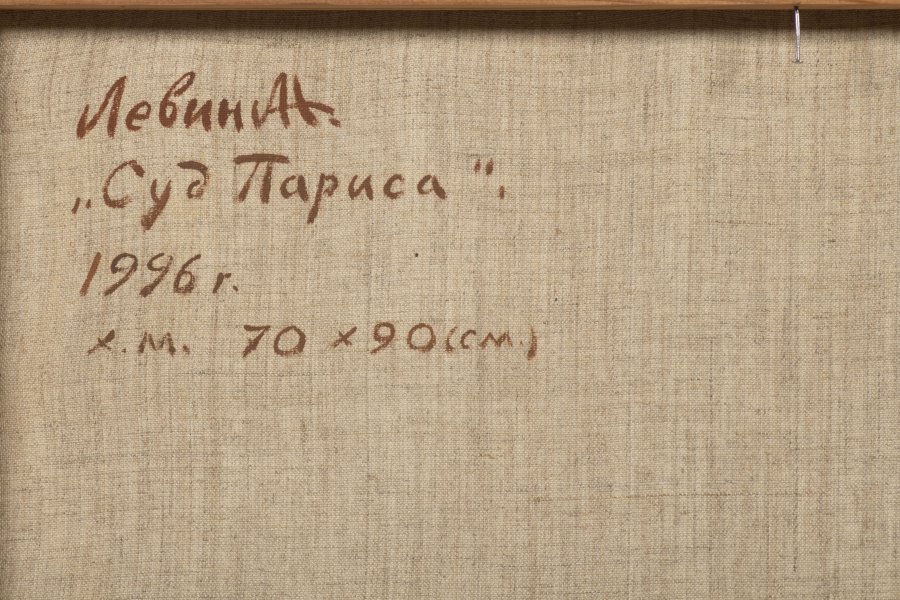 Левин А.
„Суд Париса".
1996 г.
х.м. 70 × 90 (см.)